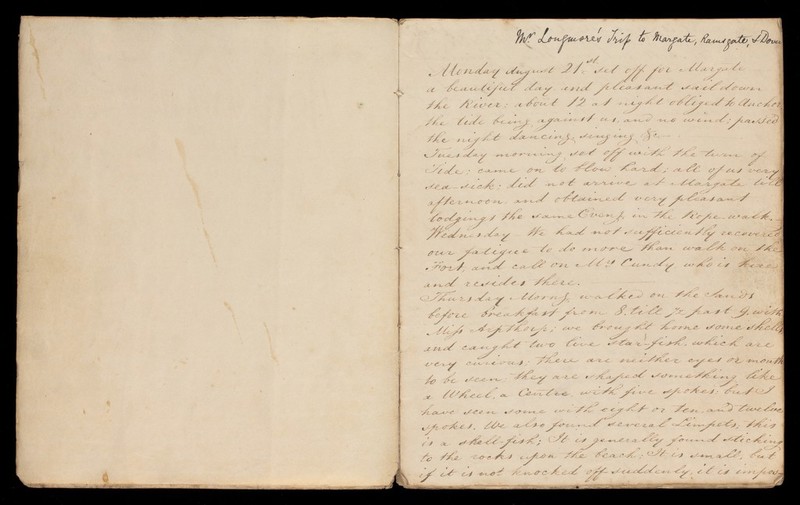 Mrs. Longmore's Trip to Margate, Ramsgate, & Dover
Monday August 21st. set off for Margate
a beautiful day and pleasant sail down
the River: about 12 at night obliged to Anchor
the tide being against us, and no wind; passed
the night dancing, singing &c.
Tuesday morning set off with the turn of
Tide: came on to blow hard; all of us very
sea-sick: did not arrive at Margate till
afternoon and obtained very pleasant
lodgings the same Eveng. in the Rope walk.
Wednesday We had not sufficiently recovered
our fatigue to do more than walk on the
Fort, and call on Mrs Cundy, who is
and resides there.
Thursday Morng. walked on the Sands
before breakfast from 8. till ½ past 9. with
Miss Apthorp; we brought home some shells
and caught two live star-fish, which are
very curious: there are neither eyes or mouth
to be seen; they are shaped something like
a Wheel, a Centre with five spokes; but I
have seen some with eight or ten and twelve
spokes. We also found several Limpets, this
is a shell-fish; It is generally found sticking
to the rocks upon the beach; It is small, but
if it is not knocked off suddenly, it is impos